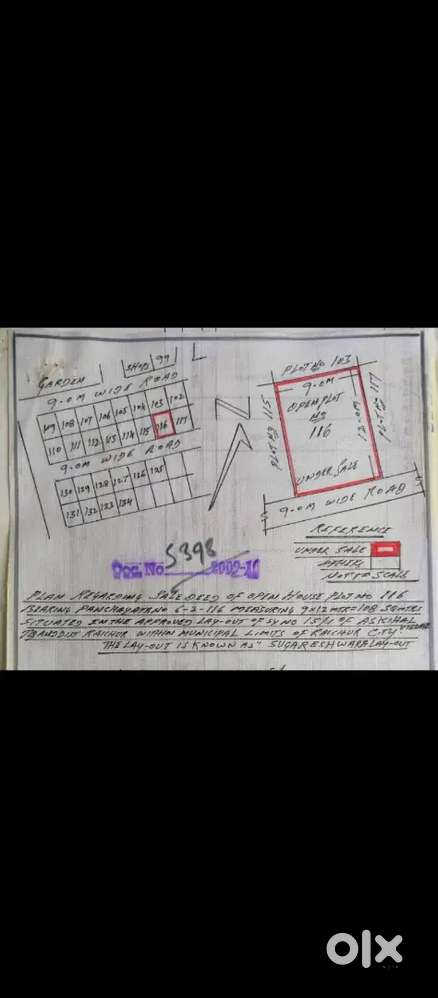 GARDEN
SHOP
99
9-0M WIDE ROAD
109 108 107 106 105 104 103 102
110 111 112 113 114 115 116 117
9-0M WIDE ROAD
130 129 128 127 126 125
131 132 133 134
N
PLOT NO 103
9-0M
OPEN PLOT
NO
116
UNDER SALE
PLOT NO 115
PLOT NO 117
9-0M WIDE ROAD
REFERENCE
UNDER SALE
NOT TO SCALE
Doc. No 5398 2009-10
PLAN REGARDING SALE DEED OF OPEN HOUSE PLOT NO 116
BEARING PANCHAYATA NO 6-2-116 MEASURING 9X12 MTR=108 SQ MTRS
SITUATED IN THE APPROVED LAY-OUT OF SY NO 15/1 OF ASKIHAL VILLAGE
RAICHUR WITHIN MUNICIPAL LIMITS OF RAICHUR CITY
THE LAY-OUT IS KNOWN AS "SUGARESHWARA LAY-OUT
olx